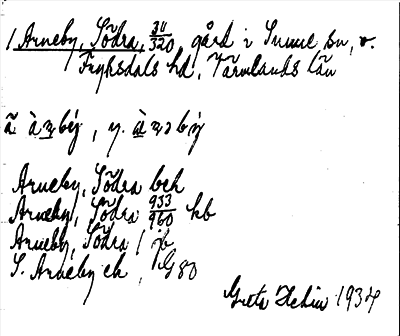 Arneby, Södra, 311/320 gård i Sunne sn, v.
Fryksdals hd, Värmlands län
Arneby, Södra bek
Arneby, Södra 933/960 kb
Arneby, Södra jb
S. Arneby ek, G80
Greta 1937